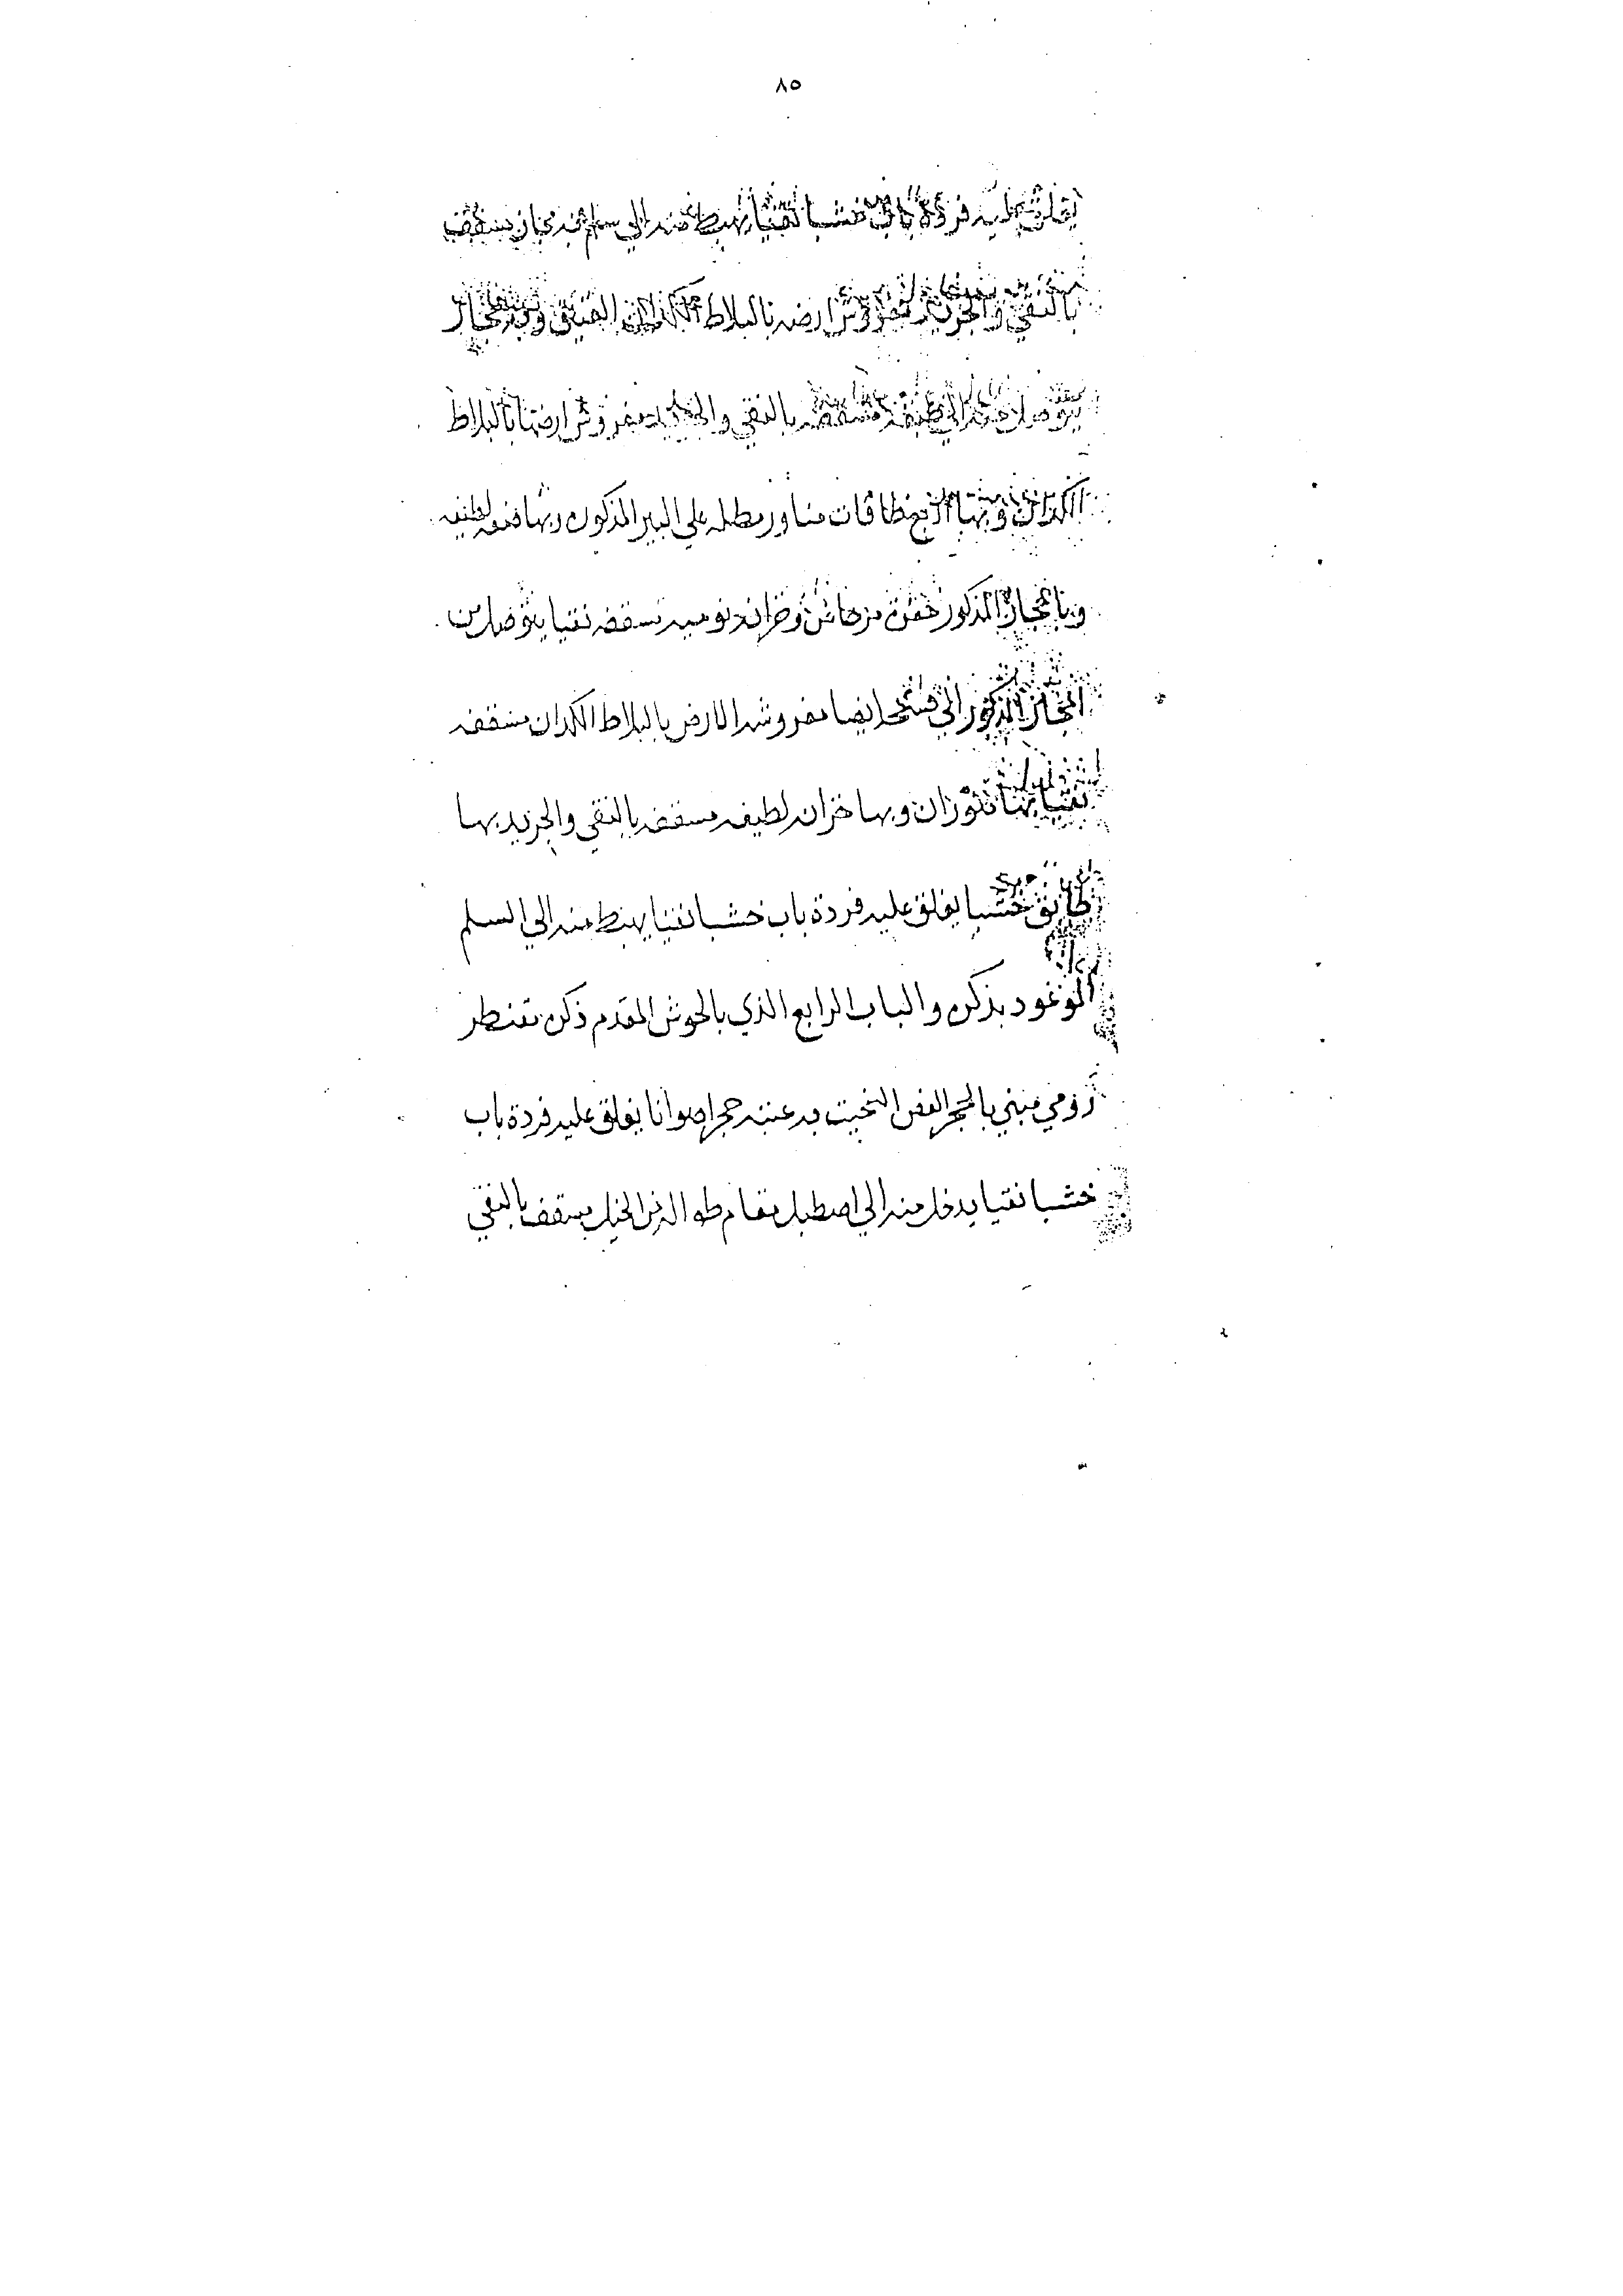 ٨٥
يغلق عليه فردة باب خشبا نقيا يهبط منه الي سلم به مجاز مسقف
بالنقي والجريد مفروش ارضه بالبلاط الكدان العتيق وبه مجاز
يتوصل منه الي مسقفه بالنقي والجريد مفروش ارضها بالبلاط
الكدان وبها اربع طاقات مناور مطله علي البير المذكوره وبها لطيفه
وبالمجاز المذكور مرحاض وخزانه نوميه مسقفه نقيا يتوصل من
المجاز المذكور الي فسحه ايضا مفروشه الارض بالبلاط الكدان مسقفه
نقيا بها تنوران وبها خزانه لطيفه مسقفه بالنقي والجريد بها
طابق خشبا يغلق عليه فردة باب خشبا نقيا يهبط منه الي السلم
الموعود بذكره والباب الرابع الذي بالحوش المقدم ذكره مقنطر
رومي مبني بالحجر الفص النحيت به عتبه حجرا صوانا يغلق عليه فردة باب
خشبا نقيا يدخل منه الي اصطبل مقام طوالة من الخيل مسقف بالنقي